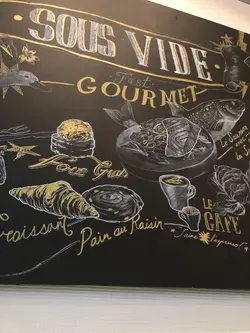 SOUS VIDE
Fast
GOURMET
Foie Gras
Croissant
Pain au Raisin
LE
CAFE